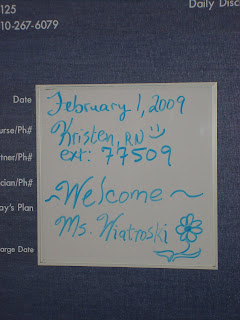 125
Daily Disc
10-267-6079
Date
February 1, 2009
urse/Ph#
Kristen, RN
rtner/Ph#
ext: 77509
ician/Ph#
~Welcome~
ay's Plan
Ms. Wiatroski
arge Date